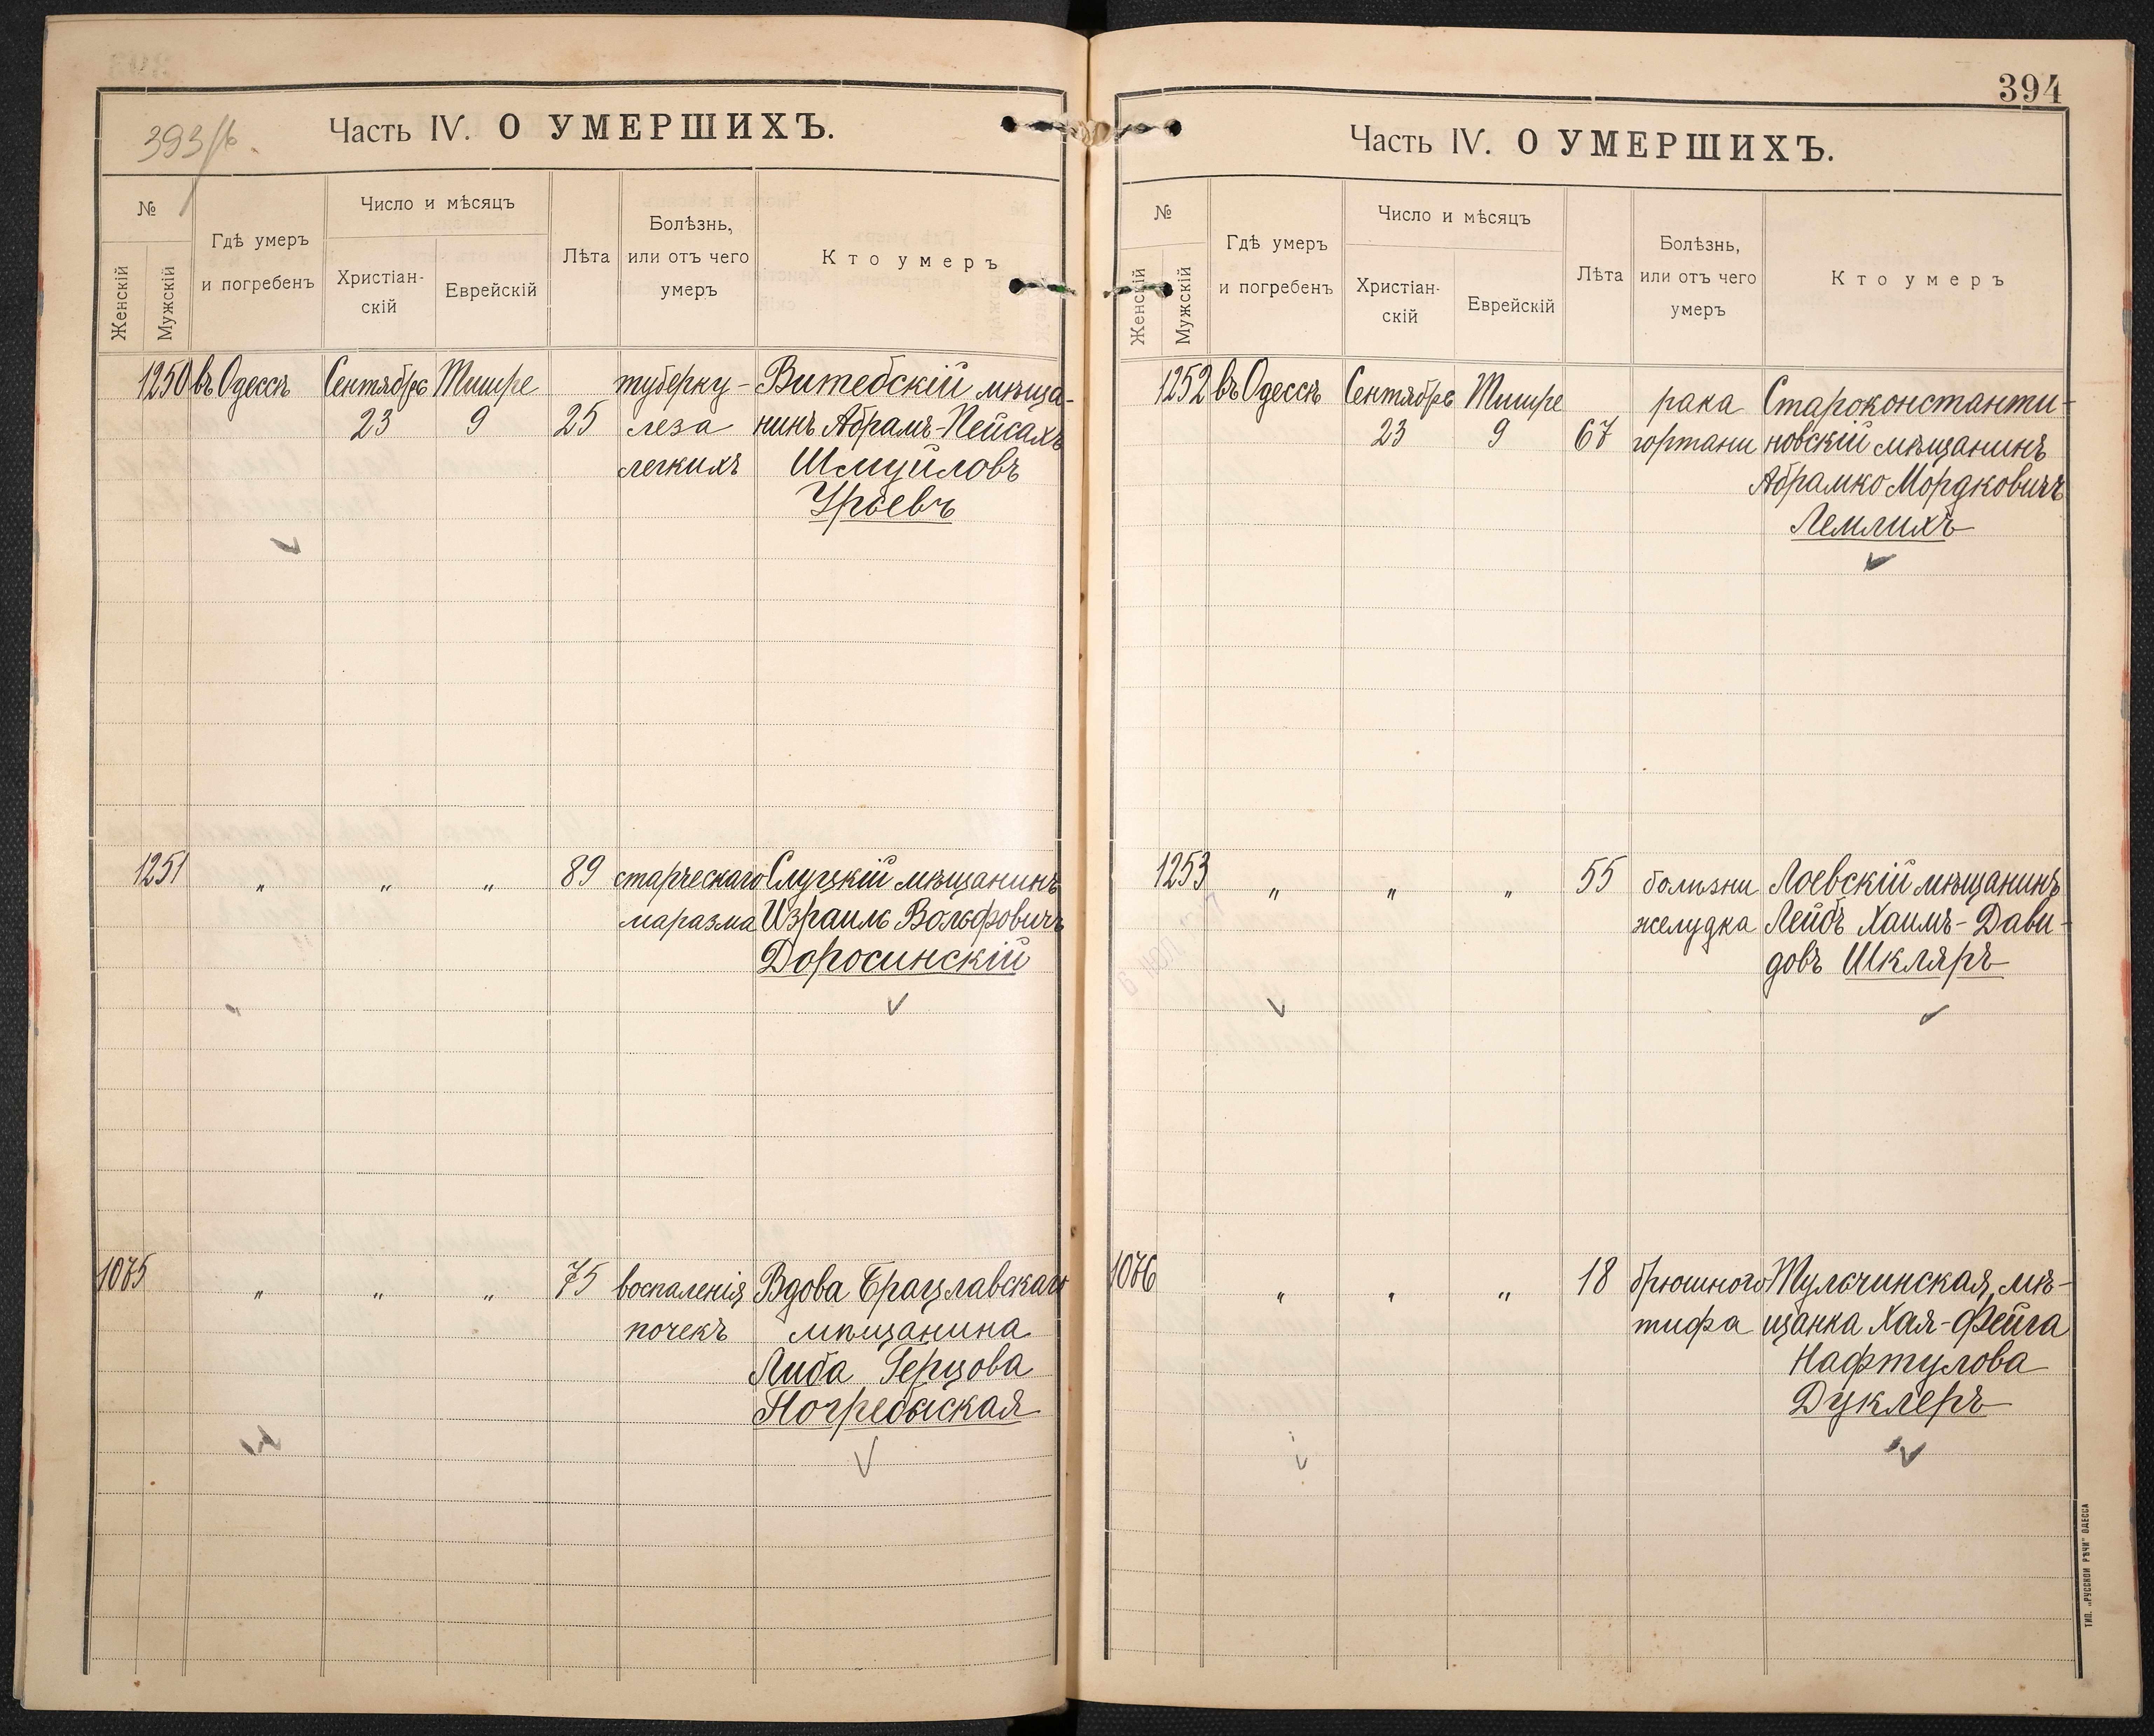 393/б.
Часть IV. О УМЕРШИХЪ.
№
Женскій
Мужскій
Гдѣ умеръ
и погребенъ
Число и мѣсяцъ
Христіан-
скій
Еврейскій
Лѣта
Болѣзнь,
или отъ чего
умеръ
Кто умеръ
1250 въ Одессѣ Сентябрь Тишре туберку- Витебскій мѣща-
23 9 25 леза нинъ Абрамъ-Пейсахъ
легкихъ Шмуйловъ
Урьевъ
1251 " " " 89 старческаго Слуцкій мѣщанинъ
маразма Израиль Вольфовичъ
Доросинскій
1075 " " " 75 воспаленія Вдова Брацлавскаго
почекъ мѣщанина
Либа Герцова
Погребыская
394
Часть IV. О УМЕРШИХЪ.
№
Женскій
Мужскій
Гдѣ умеръ
и погребенъ
Число и мѣсяцъ
Христіан-
скій
Еврейскій
Лѣта
Болѣзнь,
или отъ чего
умеръ
Кто умеръ
1252 въ Одессѣ Сентябрь Тишре рака Староконстанти-
23 9 67 гортани новскій мѣщанинъ
Абрамко Мордковичъ
Лемлихъ
1253 " " " 55 болѣзни Лоевскій мѣщанинъ
желудка Лейбъ Хаимъ-Дави-
довъ Шкляръ
1076 " " " 18 брюшного Тульчинская мѣ-
тифа щанка Хая-Фейга
Нафтулова
Дуклеръ
ТИП. „РУССКОЙ РѢЧИ" ОДЕССА